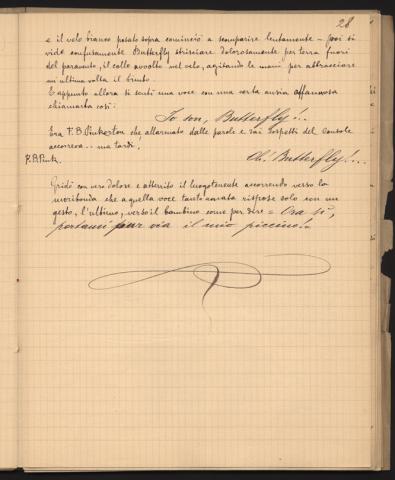 28
e il velo bianco posato sopra cominciò a scomparire lentamente – poi si
vide confusamente Butterfly strisciare dolorosamente per terra fuori
del paravento, il collo avvolto nel velo, agitando le mani per abbracciare
un'ultima volta il bimbo.
E appunto allora si sentì una voce con una certa ansia affannosa
chiamarla così:
Io son, Butterfly!..
Era F. B. Pinkerton che allarmato dalle parole e dai sospetti del Console
accorreva... ma tardi;
F. B. Pink. Oh! Butterfly!...
Gridò con vero dolore e atterrito il luogotenente accorrendo verso la
moribonda che a quella voce tanto amata rispose solo con un
gesto, l'ultimo, verso il bambino come per dire = Ora sì,
portami pur via il mio piccino!..